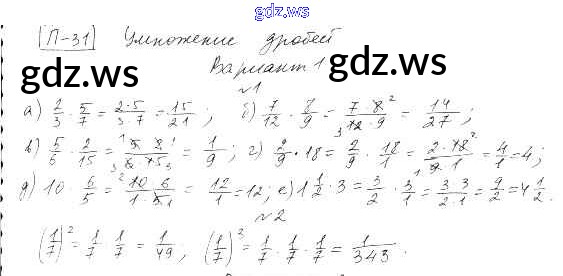 gdz.ws
П-31 Умножение дробей
gdz.ws gdz.ws
Вариант 1
№1
а) 2/3 · 5/7 = 2·5/3·7 = 15/21; б) 7/12 · 8/9 = 7·8²/₃12·9 = 14/27;
в) 5/6 · 2/15 = ¹5·2¹/₃6·15₃ = 1/9; г) 2/9 · 18 = 2/9 · 18/1 = 2·18²/₁9·1 = 4/1 = 4;
д) 10 · 6/5 = ²10·6/1·5₁ = 12/1 = 12; е) 1 1/2 · 3 = 3/2 · 3/1 = 3·3/2·1 = 9/2 = 4 1/2.
№2
(1/7)² = 1/7 · 1/7 = 1/49; (1/7)³ = 1/7 · 1/7 · 1/7 = 1/343.